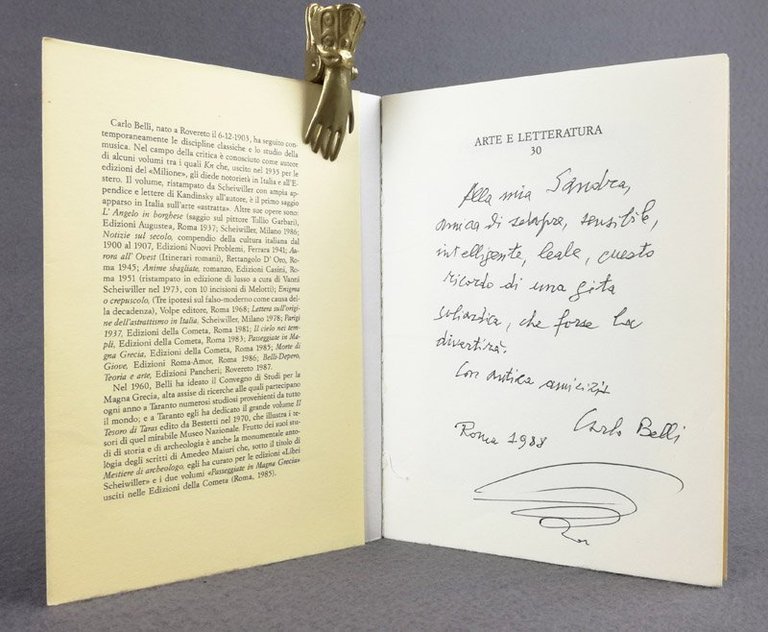 Carlo Belli, nato a Rovereto il 6-12-1903, ha seguito con-
temporaneamente le discipline classiche e lo studio della
musica. Nel campo della critica è conosciuto come autore
di alcuni volumi tra i quali Kn che, uscito nel 1935 per le
edizioni del «Milione», gli diede notorietà in Italia e all'E-
stero. Il volume, ristampato da Scheiwiller con ampia ap-
pendice e lettere di Kandinsky all'autore, è il primo saggio
apparso in Italia sull'arte «astratta». Altre sue opere sono:
L' Angelo in borghese (saggio sul pittore Tullio Garbari),
Edizioni Augustea, Roma 1937; Scheiwiller, Milano 1986;
Notizie sul secolo, compendio della cultura italiana dal
1900 al 1907, Edizioni Nuovi Problemi, Ferrara 1941; Au-
rora all' Ovest (Itinerari romani), Rettangolo D' Oro, Ro-
ma 1945; Anime sbagliate, romanzo, Edizioni Casini, Ro-
ma 1951 (ristampato in edizione di lusso a cura di Vanni
Scheiwiller nel 1973, con 10 incisioni di Melotti); Enigma
o crepuscolo, (Tre ipotesi sul falso-moderno come causa del-
la decadenza), Volpe editore, Roma 1968; Lettera sull'origi-
ne dell'astrattismo in Italia, Scheiwiller, Milano 1978; Parigi
1937, Edizioni della Cometa, Roma 1981; Il cielo nei tem-
pli, Edizioni della Cometa, Roma 1983; Passeggiate in Ma-
gna Grecia, Edizioni della Cometa, Roma 1985; Morte di
Giove, Edizioni Roma-Amor, Roma 1986; Belli-Depero,
Teoria e arte, Edizioni Pancheri; Rovereto 1987.
Nel 1960, Belli ha ideato il Convegno di Studi per la
Magna Grecia, alta assise di ricerche alle quali partecipano
ogni anno a Taranto numerosi studiosi provenienti da tutto
il mondo; e a Taranto egli ha dedicato il grande volume Il
Tesoro di Taras edito da Bestetti nel 1970, che illustra i te-
sori di quel mirabile Museo Nazionale. Frutto dei suoi stu-
di di storia e di archeologia è anche la monumentale anto-
logia degli scritti di Amedeo Maiuri che, sotto il titolo di
Mestiere di archeologo, egli ha curato per le edizioni «Libri
Scheiwiller» e i due volumi «Passeggiate in Magna Grecia»
usciti nelle Edizioni della Cometa (Roma, 1985).
ARTE E LETTERATURA
30
Alla mia Sandra,
amica di sempre, sensibile,
intelligente, leale, questo
ricordo di una gita
goliardica, che forse la
divertirà.
Con antica amicizia
Carlo Belli
Roma 1988